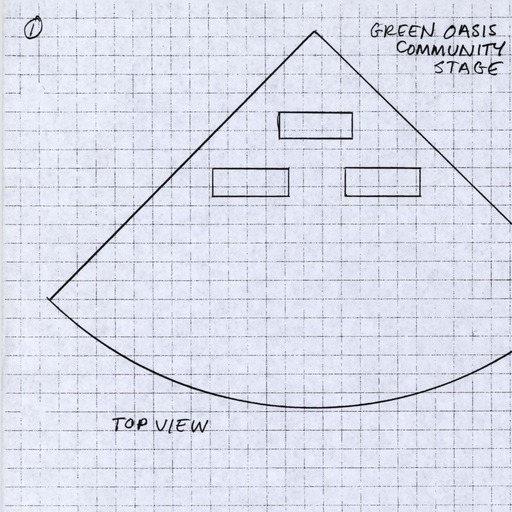 ①
GREEN OASIS
COMMUNITY
STAGE
TOP VIEW